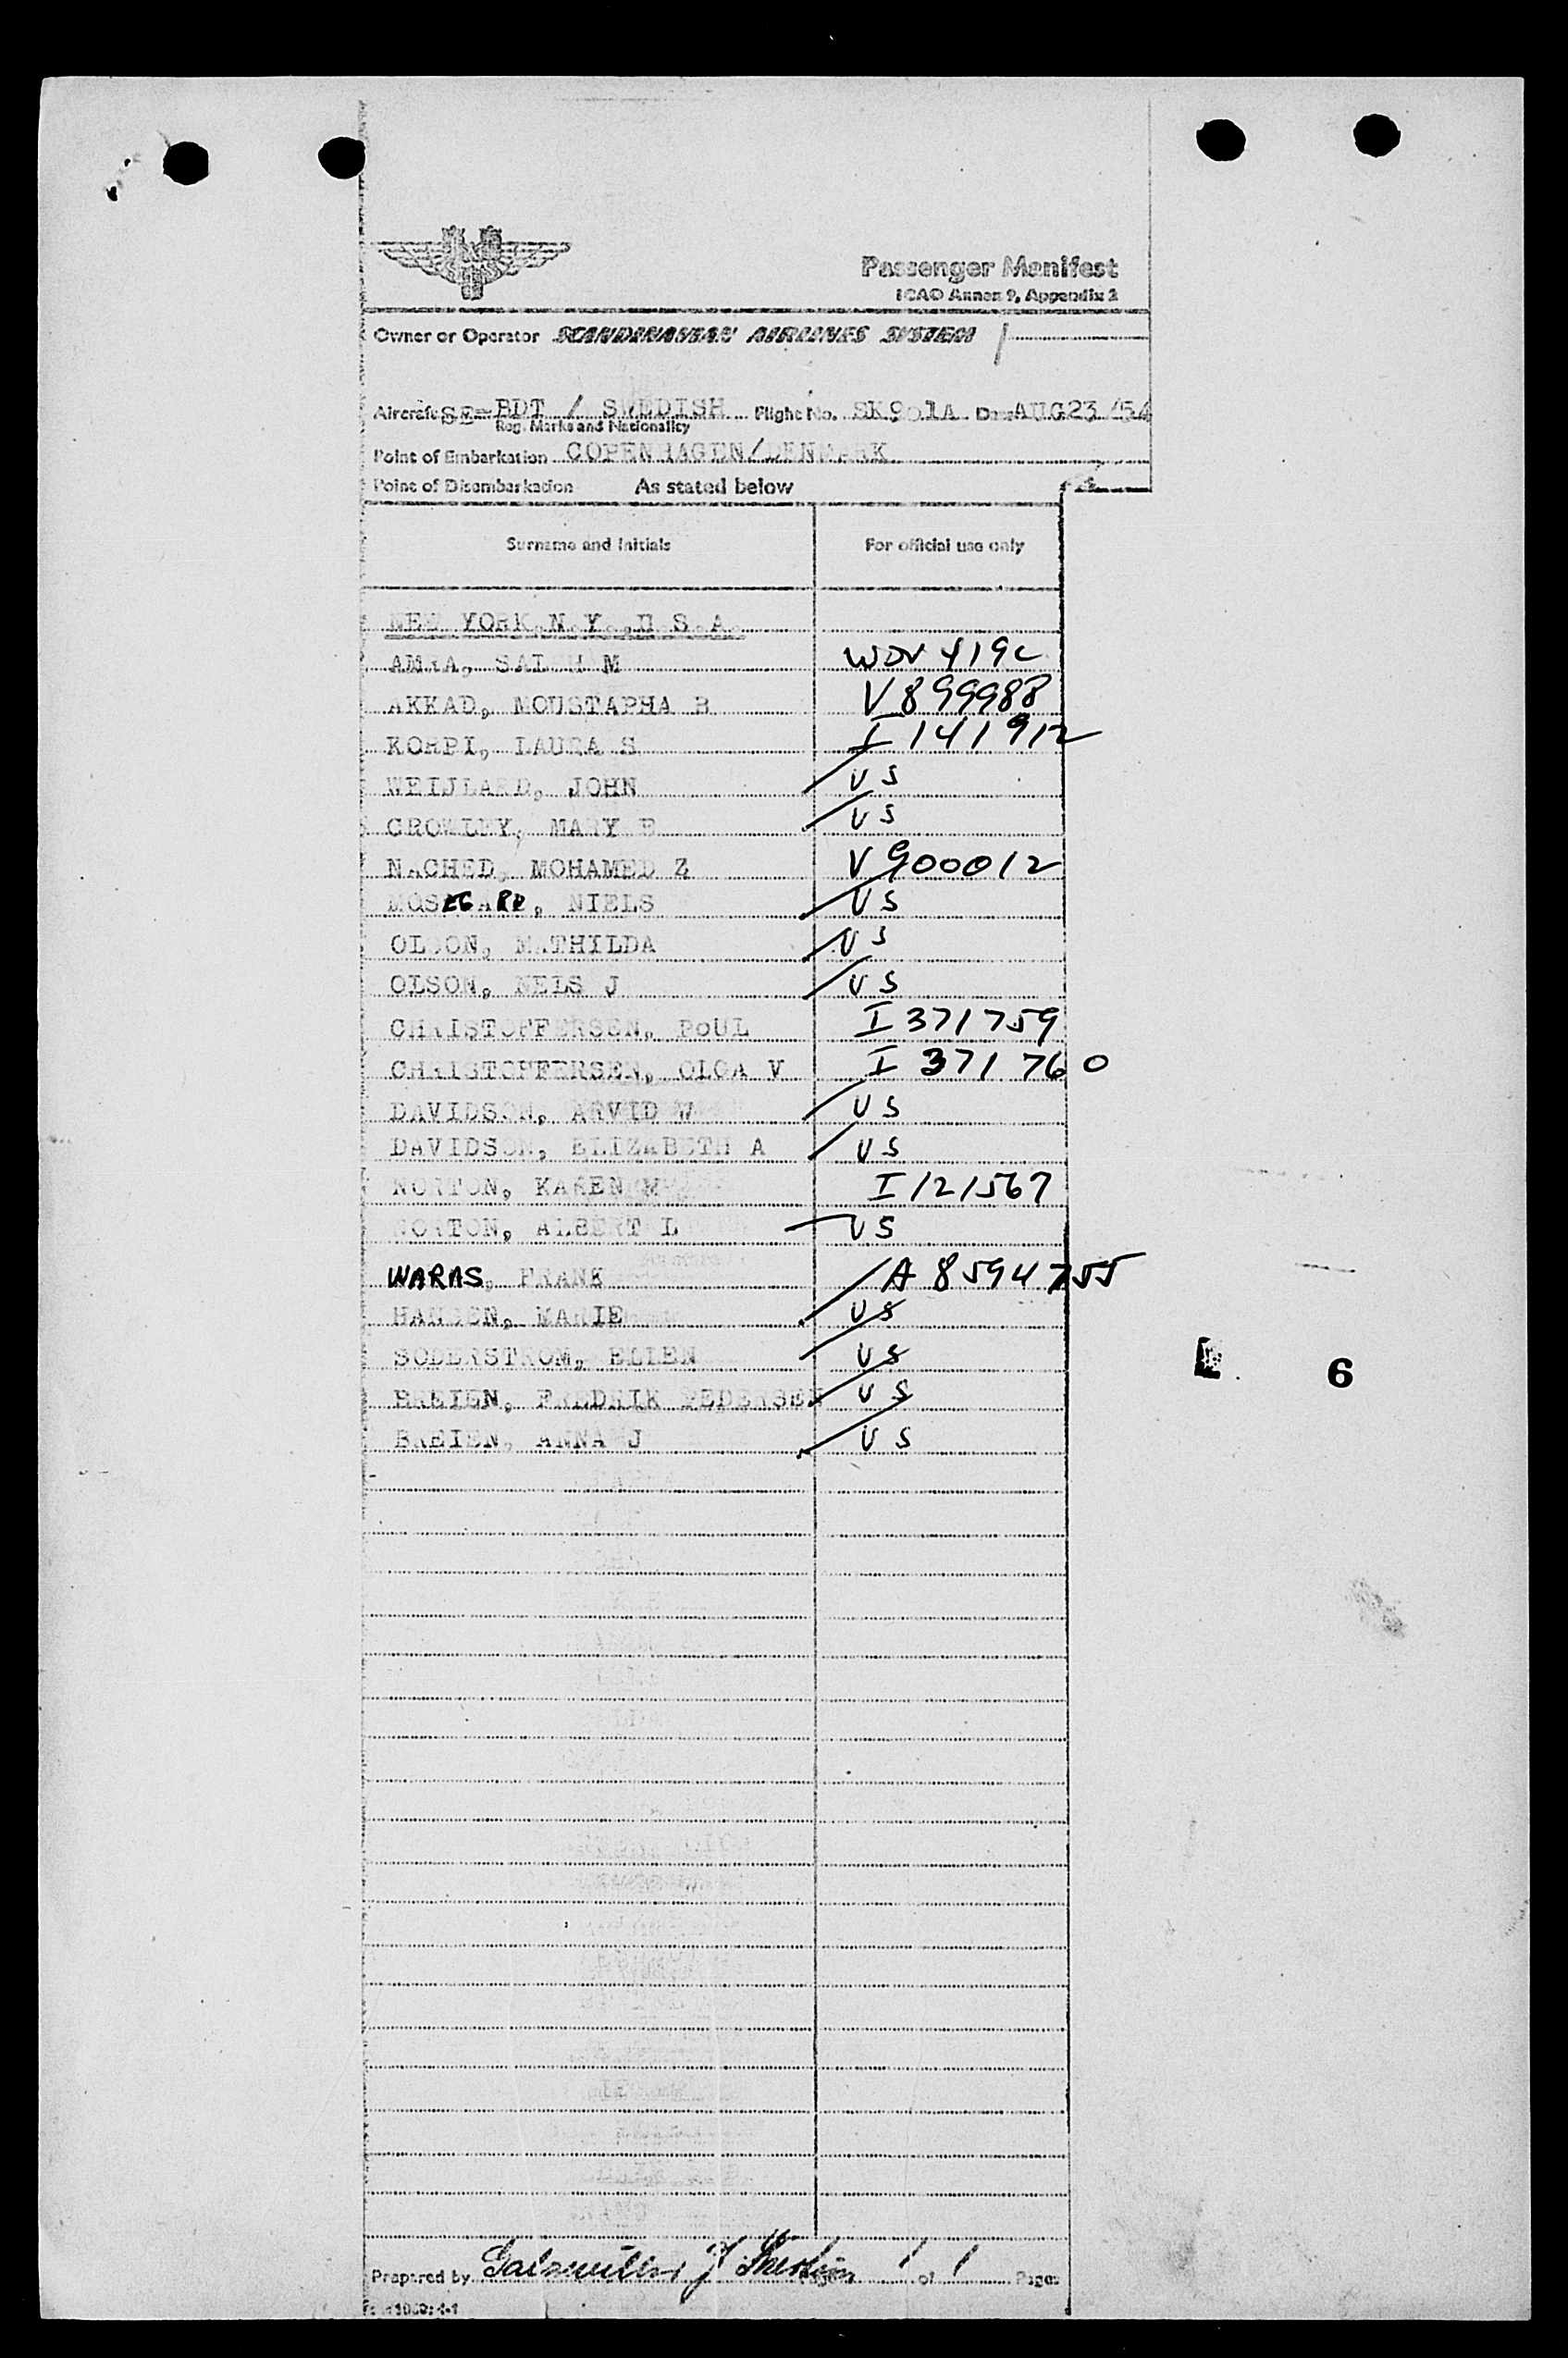 Passenger Manifest
ICAO Annex 9, Appendix 2
Owner or Operator SCANDINAVIAN AIRLINES SYSTEM
Aircraft SE-BDT / SWEDISH Flight No. SK901A D AUG23/54
Reg. Marks and Nationality
Point of Embarkation COPENHAGEN/DENMARK
Point of Disembarkation As stated below
Surname and Initials For official use only
NEW YORK, N.Y., U.S.A.
AMRA, SALEH M WDV 419C
AKKAD, MOUSTAPHA B V 899988
KORPI, LAURA S I 141912
WEIJLARD, JOHN US
CROWLEY, MARY E US
NACHED, MOHAMED Z V 900012
MOSEGARD, NIELS US
OLSON, MATHILDA US
OLSON, NELS J US
CHRISTOFFERSEN, POUL I 371759
CHRISTOFFERSEN, OLGA V I 371760
DAVIDSON, ARVID W US
DAVIDSON, ELIZABETH A US
NORTON, KAREN M I 121567
NORTON, ALBERT L US
WARAS, FRANK A 8594755
HANSEN, MARIE US
SODERSTROM, ELLEN US
BREIEN, FREDRIK PEDERSEN US
BREIEN, ANNA J US
6
Prepared by 1 of 1 Pages